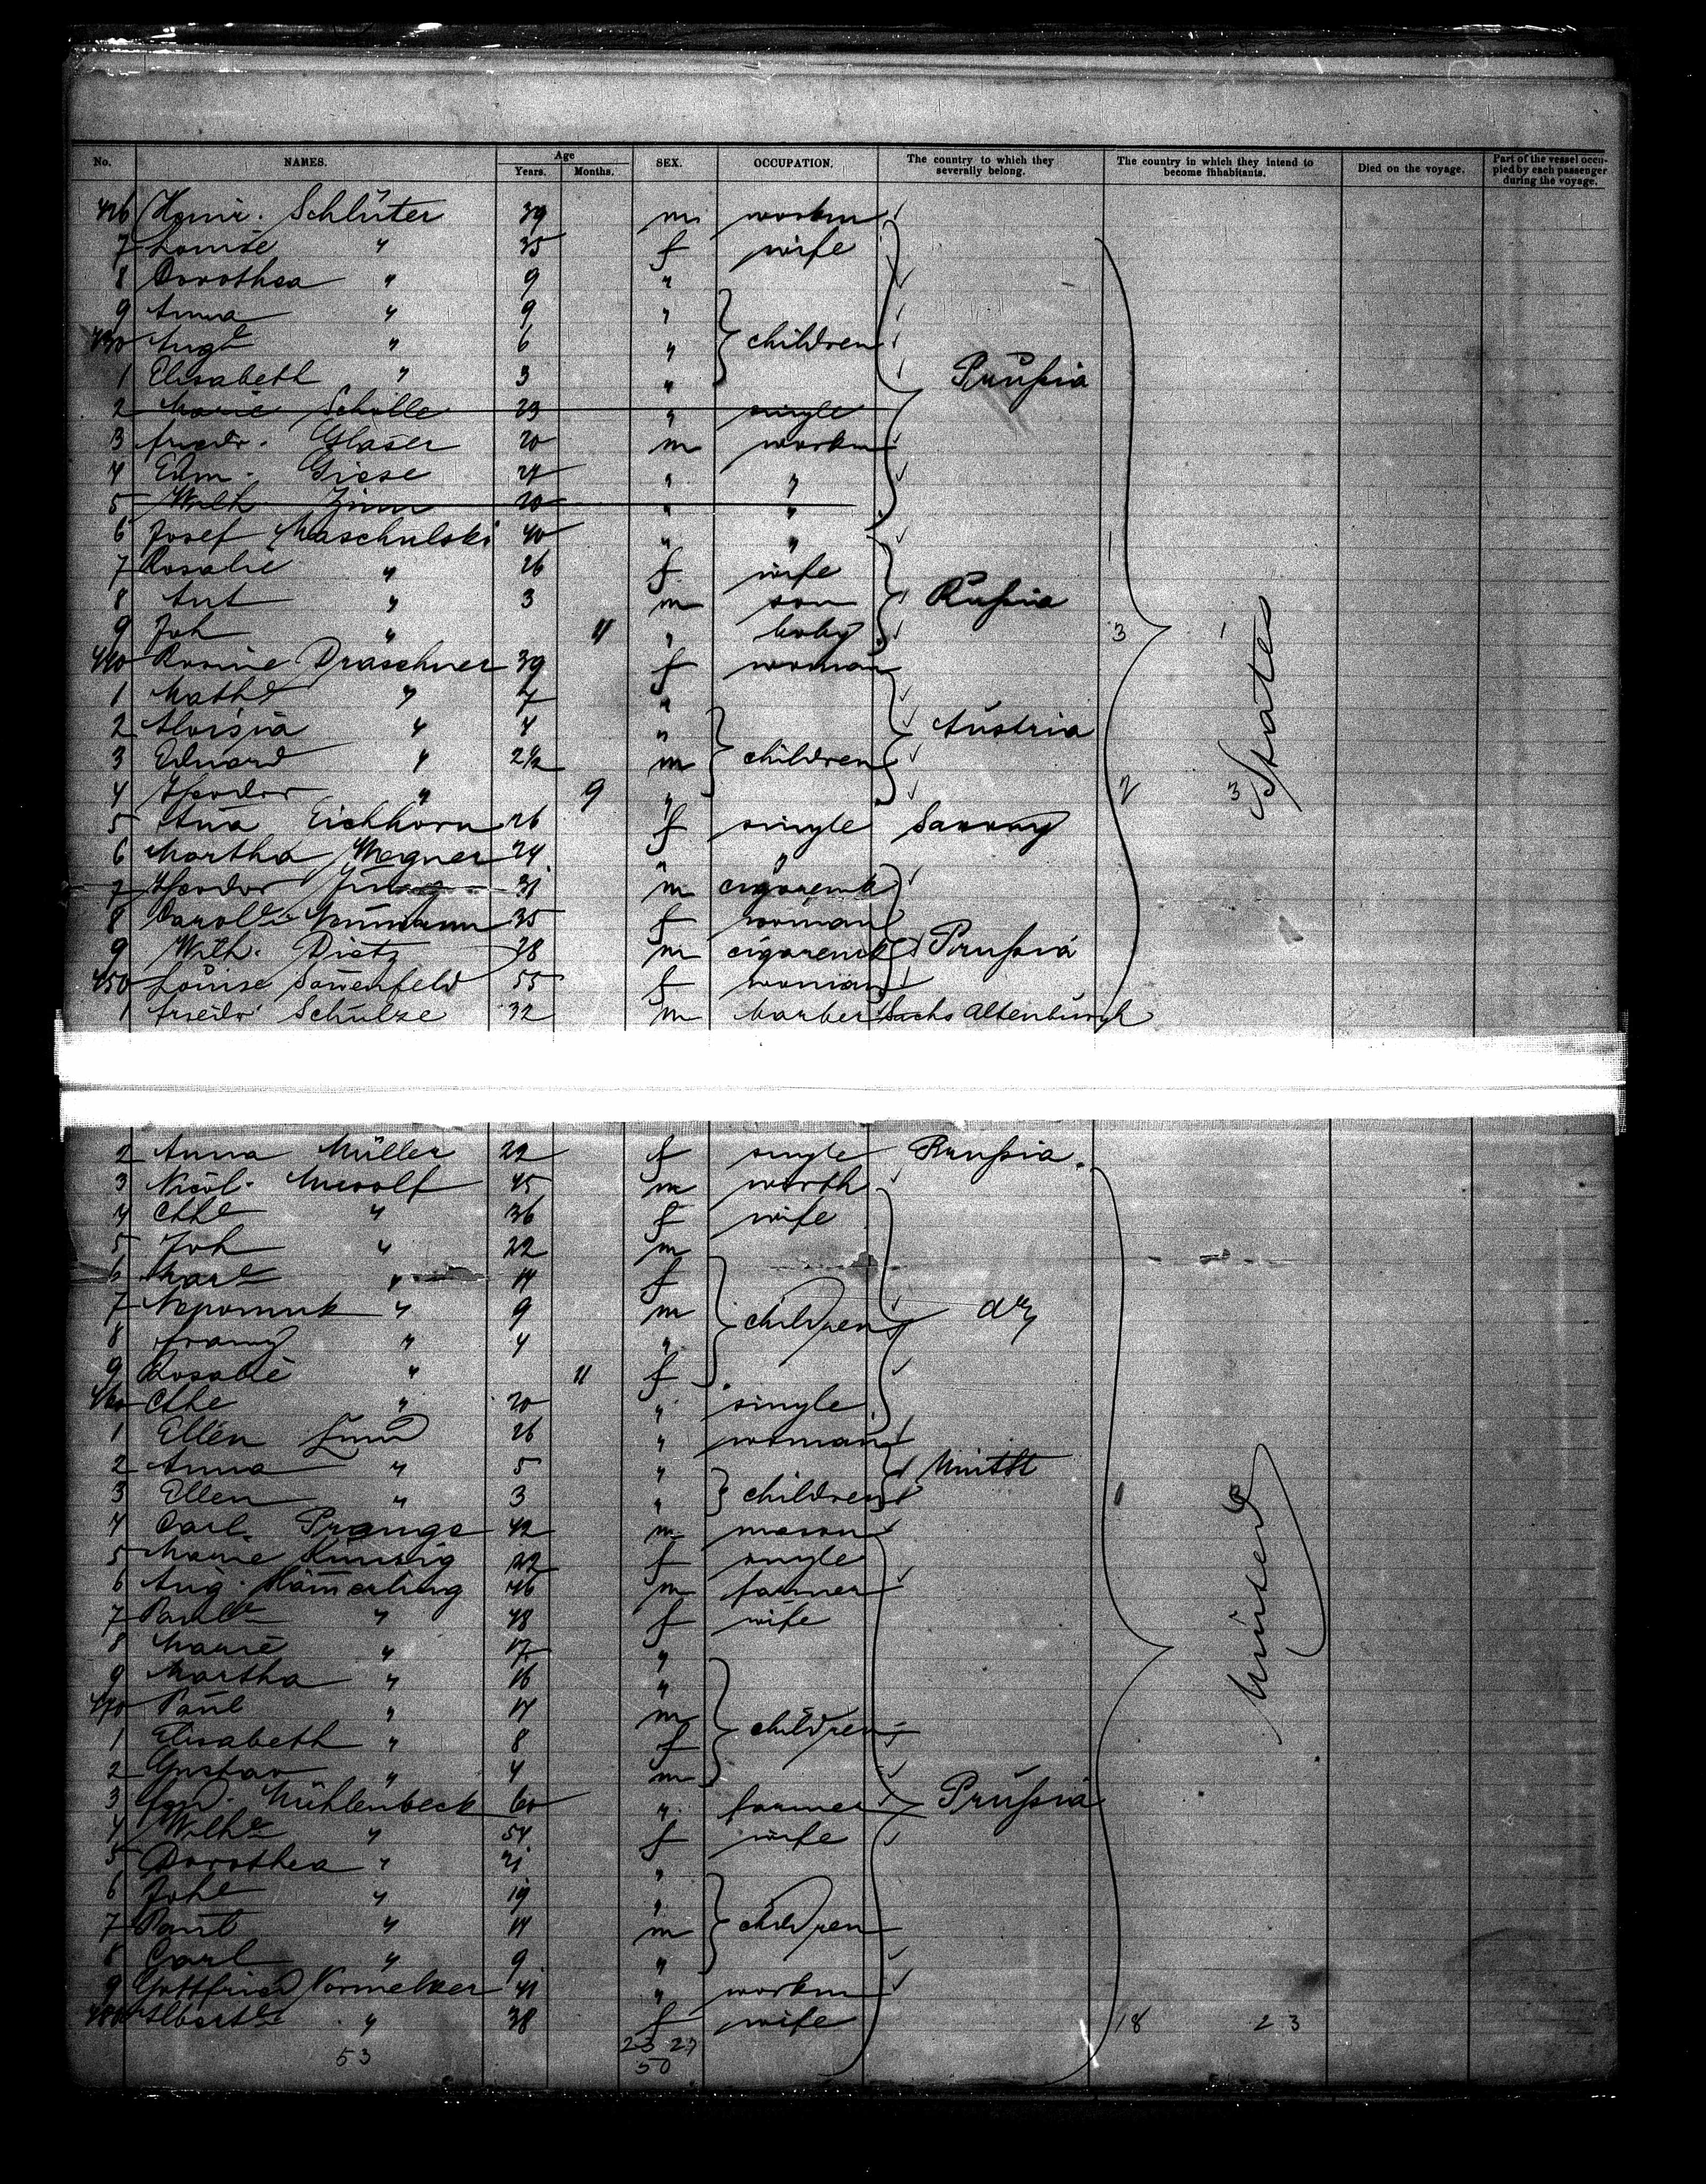 No. NAMES. Age Years. Months. SEX. OCCUPATION. The country to which they severally belong. The country in which they intend to become inhabitants. Died on the voyage. Part of the vessel occupied by each passenger during the voyage.
426 Heinr. Schlüter 39 m workm
7 Louise " 35 f wife
8 Dorothea " 9 "
9 Anna " 9 "
430 Augte " 6 " children
1 Elisabeth " 3 " Prußia
2 Marie Scholle 23 " single
3 Friedr. Glaser 20 m workm
4 Edm. Giese 27 " "
5 Wilh Zinn 20 " "
6 Josef Maschulski 40 " "
7 Rosalie " 26 f wife
8 Ant " 3 m son Rußia
9 Joh " 11 " baby 3 1
440 Rosine Draschner 39 f woman
1 Mathe " 7 "
2 Aloisia " 4 " Austria
3 Eduard " 2 1/2 m children
4 Theodor " 9 " 2 3 States
5 Anna Eichhorn 26 f single Saxony
6 Martha Wegner 24 " "
7 Theodor 31 m cigaremk
8 Carole Neumann 35 f woman
9 Wilh. Dietz 28 m cigaremk Prußia
450 Louise Sonnenfeld 55 f woman
1 Friedr Schulze 32 m barber Sachs Altenburgh
2 Anna Müller 22 f single Prußia.
3 Nicol. 45 m
4 Cthe " 36 f wife
5 Joh " 22 m
6 Mare " 14 f
7 Nepomuk " 9 m children do
8 Franz " 4 "
9 Rosalie " 11 f
460 Cthe " 20 " single
1 Ellen 26 " woman
2 Anna " 5 "
3 Ellen " 3 " children
4 Carl Prange 42 m mason
5 Marie 22 f single
6 Aug. Hämerling 46 m farmer
7 Paule " 48 f wife United
8 Marie " 17 "
9 Martha " 16 "
470 Paul " 14 m
1 Elisabeth " 8 f children
2 Gustav " 4 m
3 Mühlenbeck 60 " farmer Prußia
4 Wilhe " 54 f wife
5 Dorothea " 21 "
6 Johe " 19 "
7 Paul " 14 m children
8 Carl " 9 "
9 Gottfried Vormelker 41 " workm
480 Albertte " 38 f wife 18 23
53 23 27
50